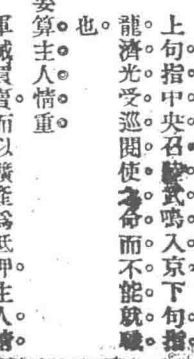 上句指中央召陸武鳴入京下句指
龍濟光受巡閱使之命而不能就職
也。
算主人情重
買賣而以礦產爲抵押主人